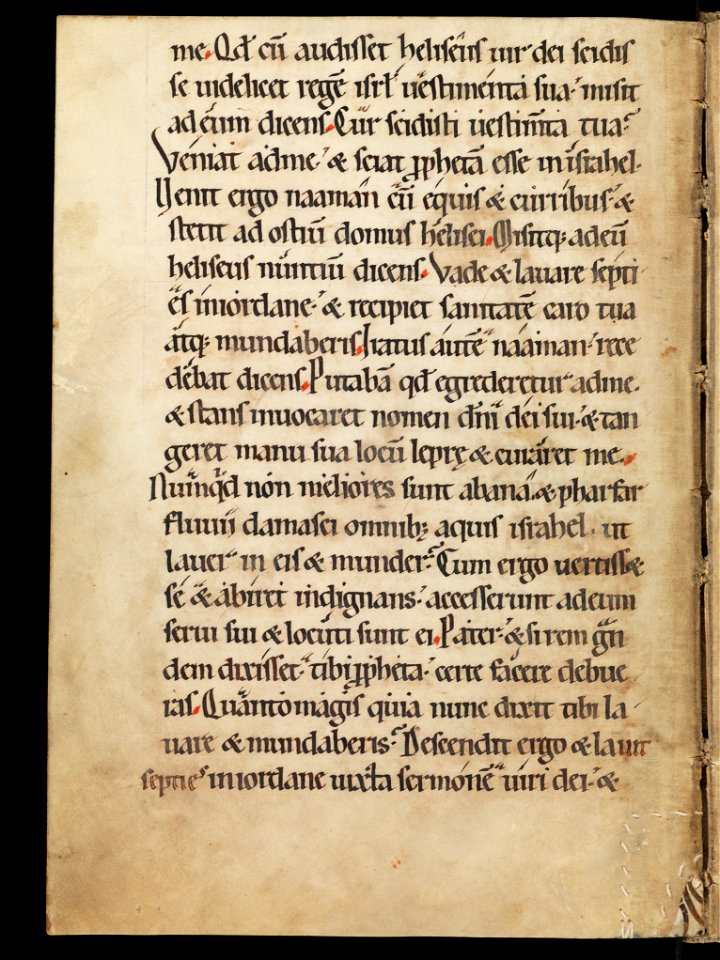 me. Qd̄ cū audisset heliseus uir dei scidis
se uidelicet regē isrł uestimenta sua. misit
ad eum dicens. Cur scidisti uestim̄ta tua?
Veniat ad me. & sciat ꝓphetā esse in israhel.
Uenit ergo naaman cū equis & curribus. &
stetit ad ostiū domus helisei. Misitq; ad eū
heliseus nuntiū dicens. Vade & lauare septi
es in iordane. & recipiet sanitatē caro tua
atq; mundaberis. Iratus autē naaman. rece
debat dicens. Putabā qd̄ egrederetur ad me.
& stans inuocaret nomen dn̄i dei sui. & tan
geret manu sua locū leprę & curaret me.
Nunqd non meliores sunt abana. & pharfar
fluuii damasci omnib; aquis israhel. ut
lauer in eis & munder? Cum ergo uertiss&
se & abiret indignans. accesserunt ad eum
serui sui & locuti sunt ei. Pater. & si rem grn̄
dem dixisset tibi ꝓpheta. certe facere debue
ras. Quanto magis quia nunc dixit tibi la
uare & mundaberis? Descendit ergo & lauit
septies in iordane iuxta sermonē uiri dei. &